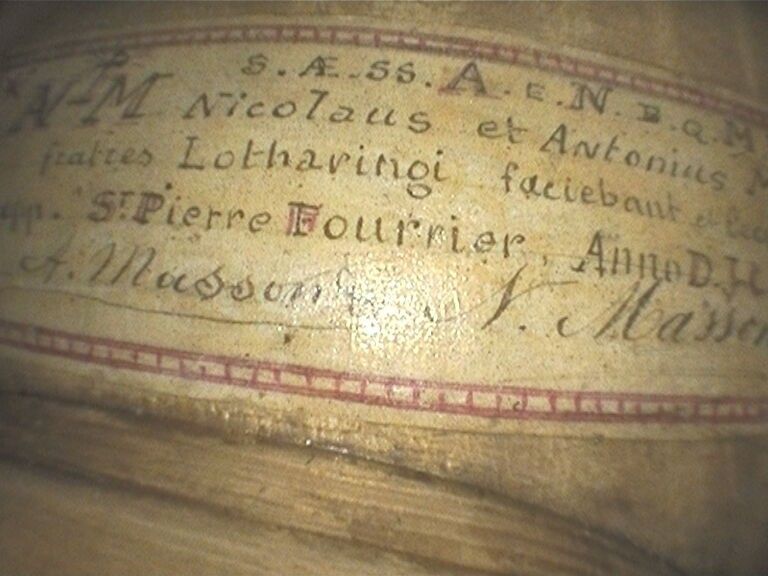 S. Æ. SS. A. E. N. B. Q. M
N-M Nicolaus et Antonius M
fratres Lotharingi faciebant et
app. St Pierre Fourrier, Anno D.
A. Masson N. Masson